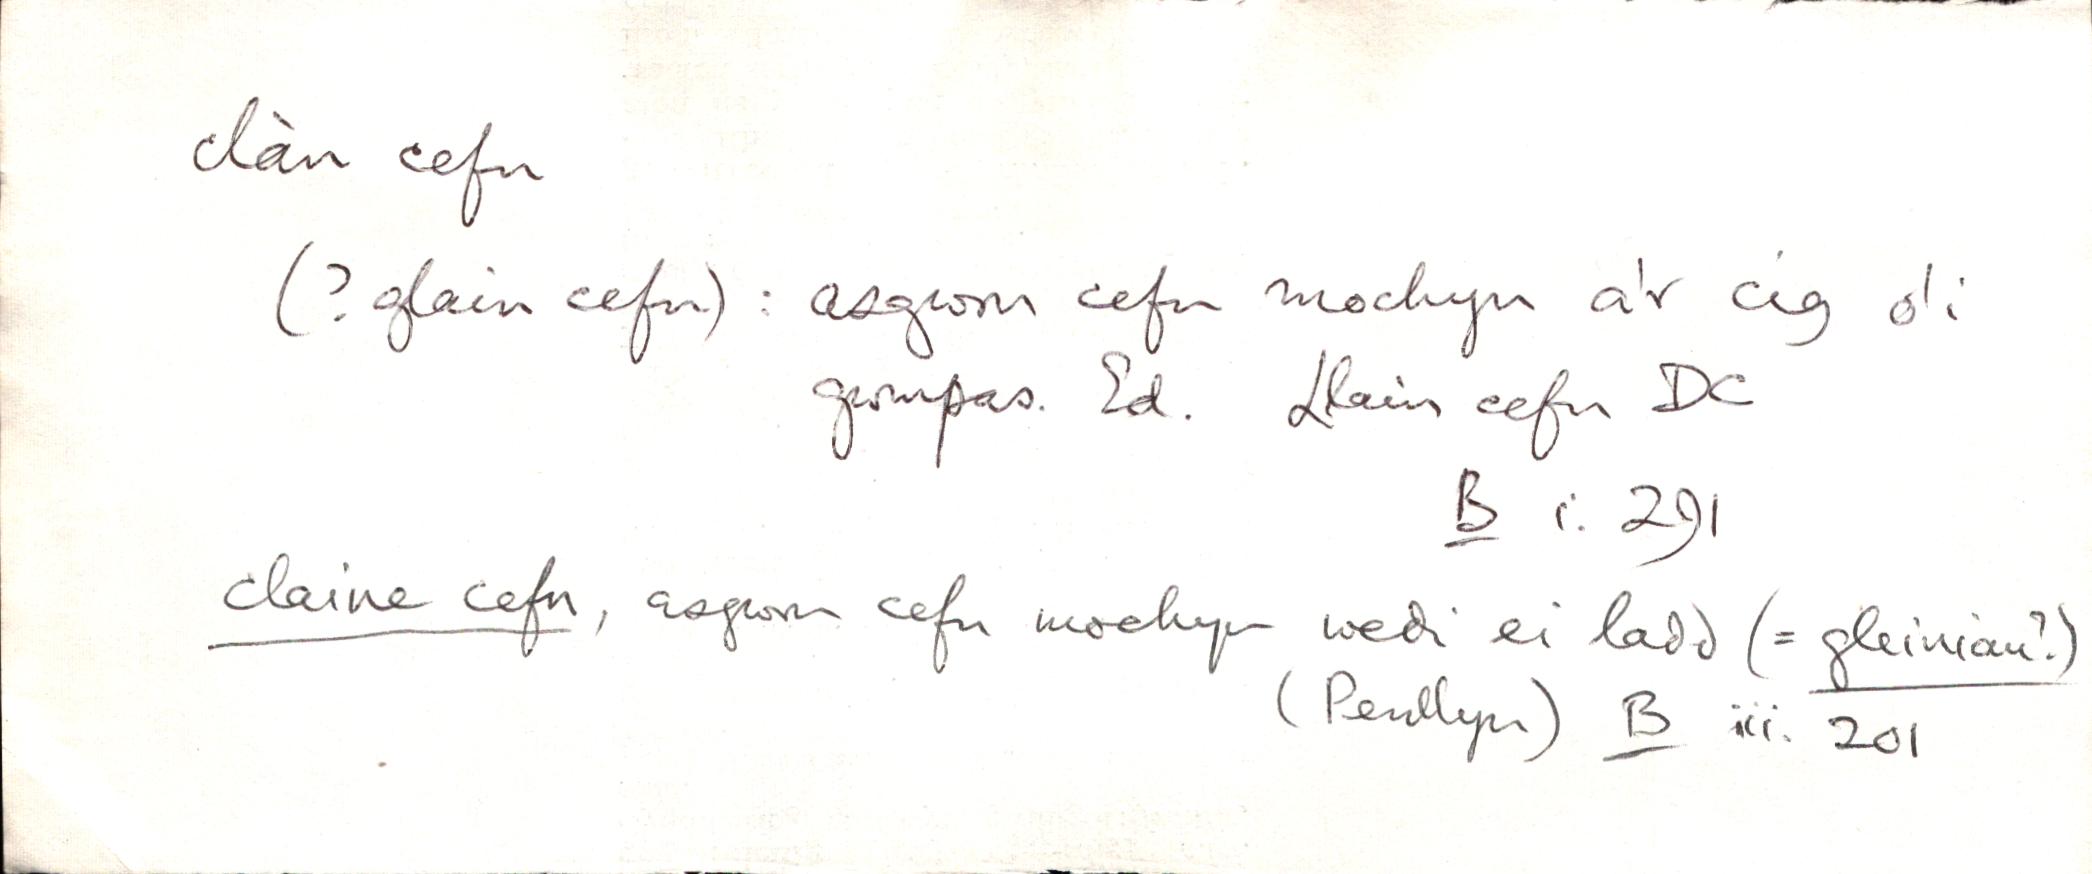 clàn cefn
(? glain cefn) : asgwrn cefn mochyn a'r cig o'i
gwmpas. Ed. Llain cefn DC
B i. 291
claine cefn, asgwrn cefn mochyn wedi ei ladd (= gleiniau?)
(Penllyn) B iii. 201